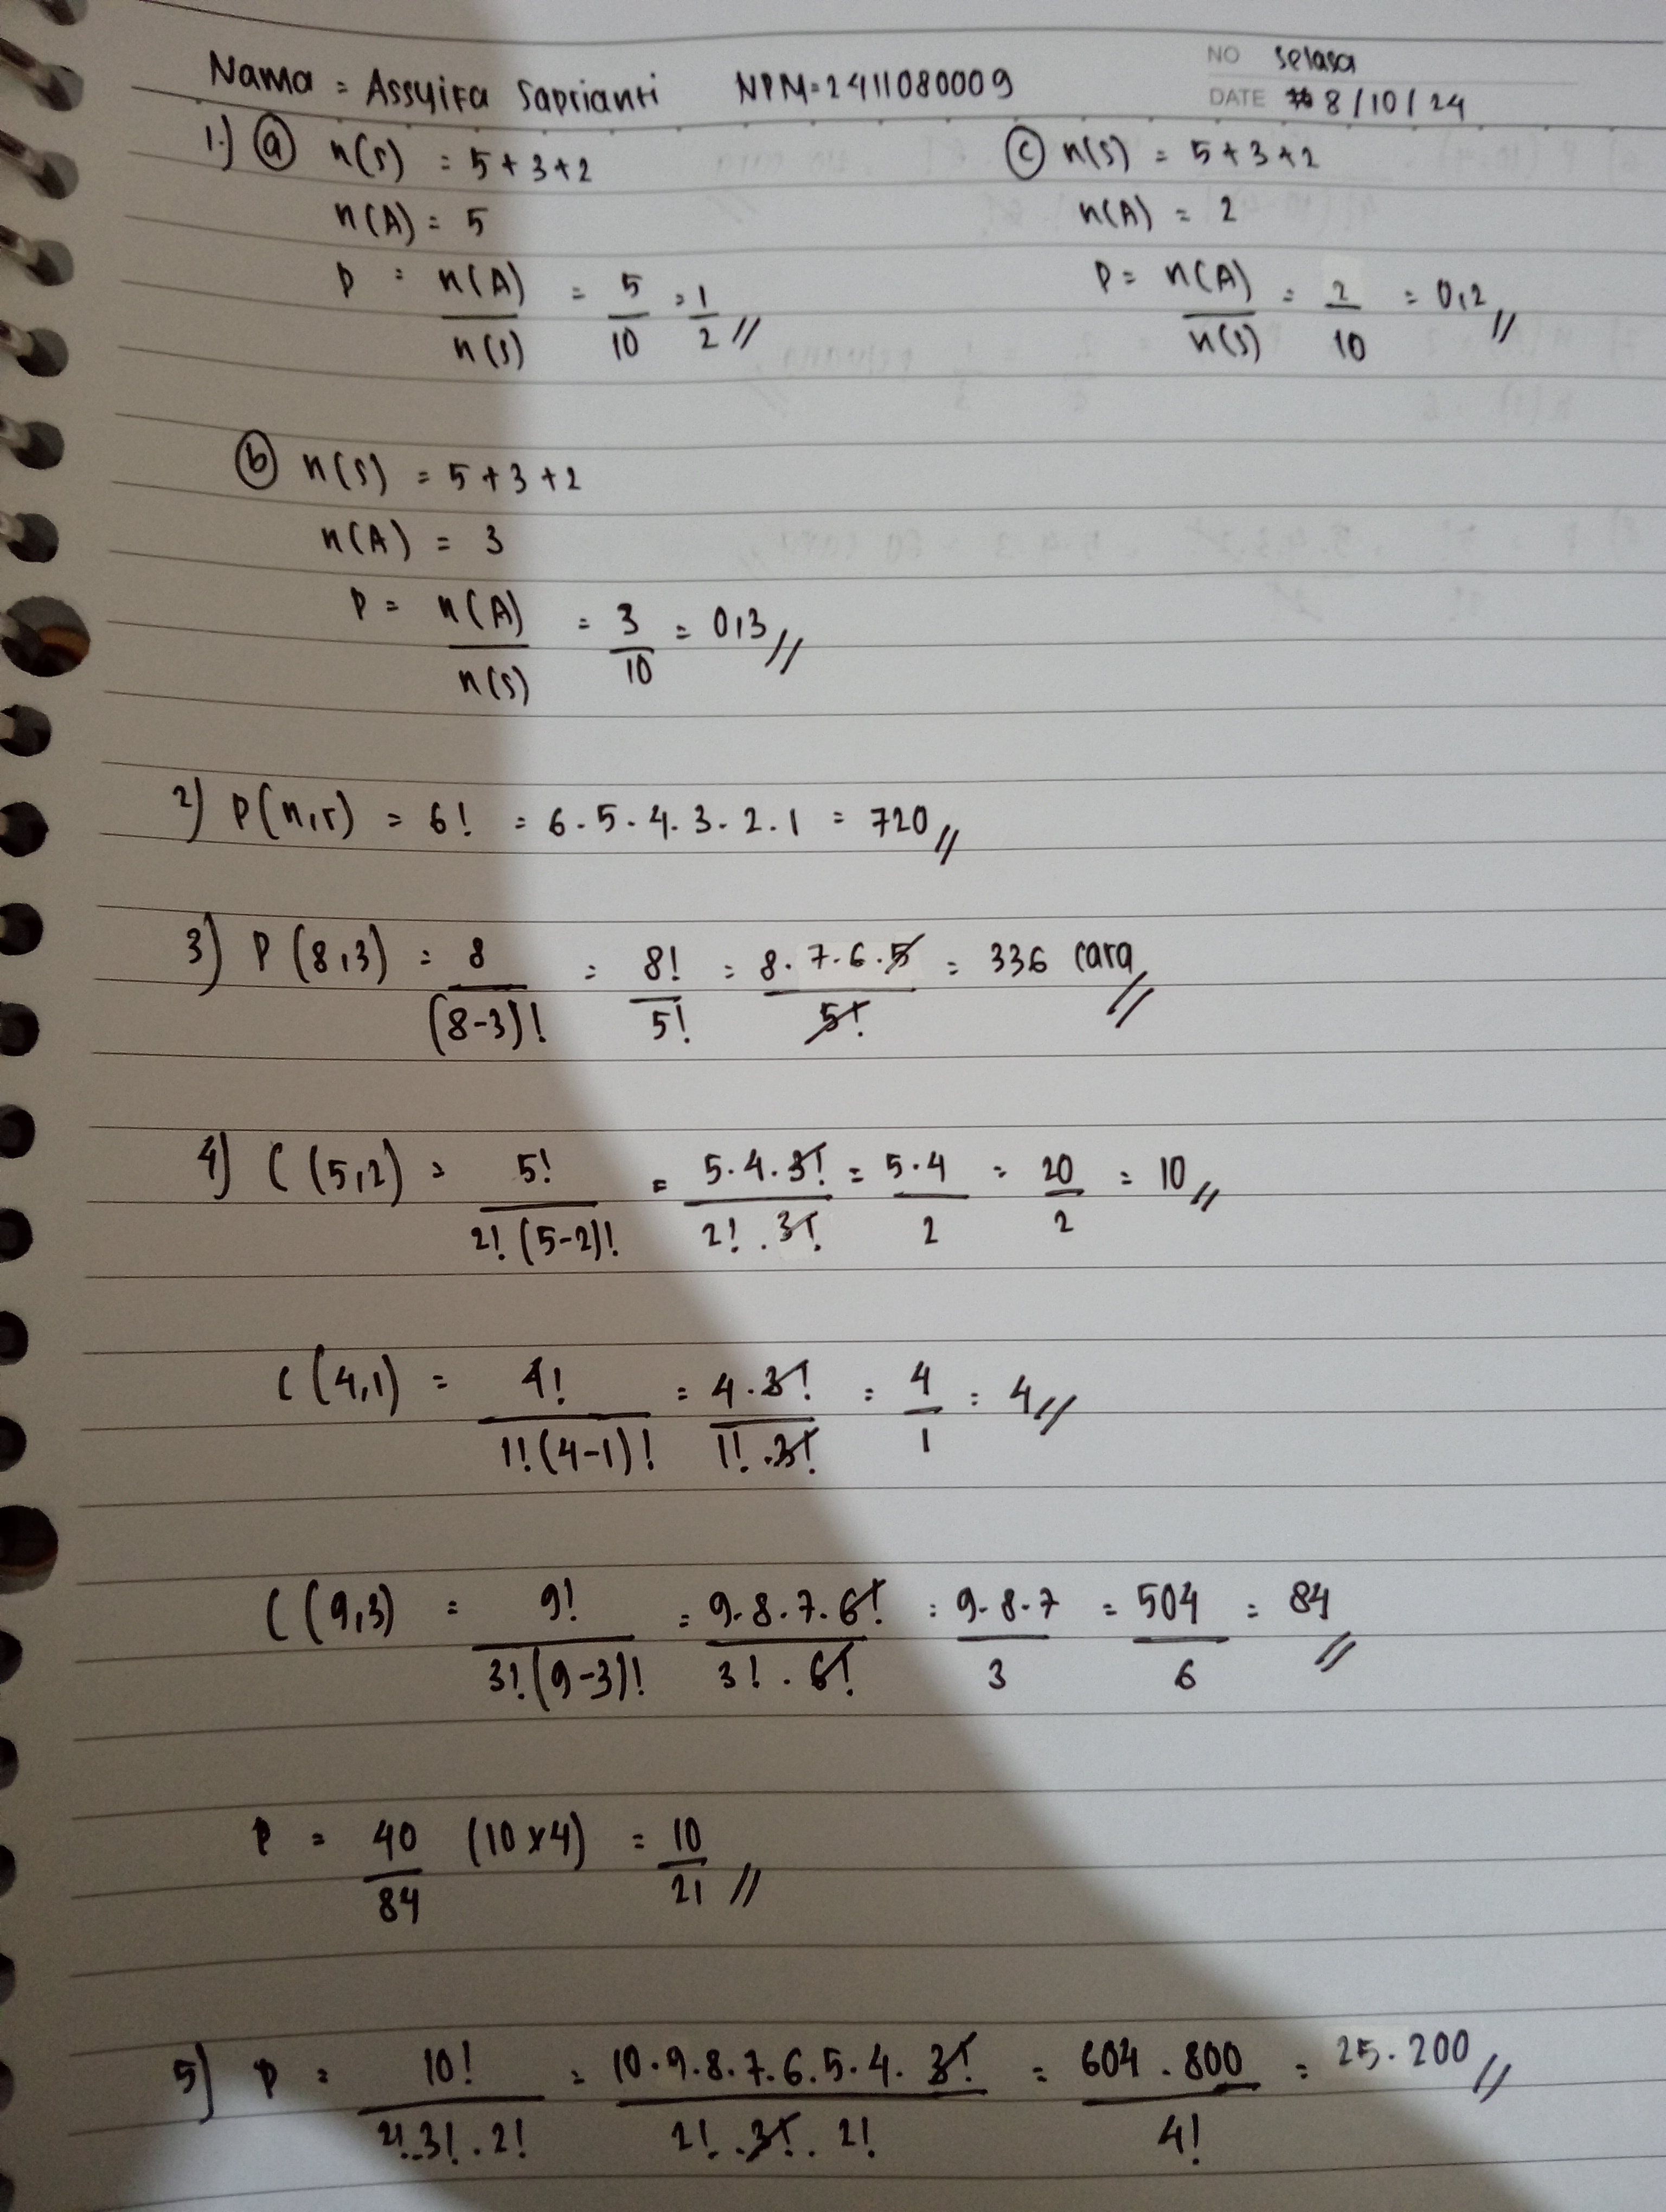 Nama = Assyifa Saprianti NPM = 2411080009
NO Selasa
DATE 8/10/24
1.) (a) n(s) = 5 + 3 + 2
n(A) = 5
P = n(A)/n(s) = 5/10 = 1/2 //
(c) n(s) = 5 + 3 + 2
n(A) = 2
P = n(A)/n(s) = 2/10 = 0,2 //
(b) n(s) = 5 + 3 + 2
n(A) = 3
P = n(A)/n(s) = 3/10 = 0,3 //
2) P(n,r) = 6! = 6 . 5 . 4 . 3 . 2 . 1 = 720 //
3) P(8,3) = 8/(8-3)! = 8!/5! = 8 . 7 . 6 . 5/5! = 336 cara //
4) C(5,2) = 5!/2!(5-2)! = 5 . 4 . 3!/2! . 3! = 5 . 4/2 = 20/2 = 10 //
C(4,1) = 4!/1!(4-1)! = 4 . 3!/1! . 3! = 4/1 = 4 //
C(9,3) = 9!/3!(9-3)! = 9 . 8 . 7 . 6!/3! . 6! = 9 . 8 . 7/3 = 504/6 = 84 //
P = 40/84 (10 x 4) = 10/21 //
5) P = 10!/2! . 3! . 2! = 10 . 9 . 8 . 7 . 6 . 5 . 4 . 3!/2! . 3! . 2! = 604 . 800/4! = 25 . 200 //